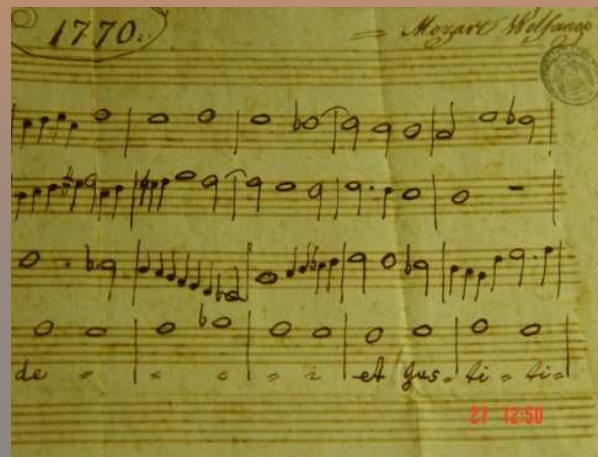 1770.
= Mozart Wolfango
de = = c = i et Jus = ti = ti=
27 12:50